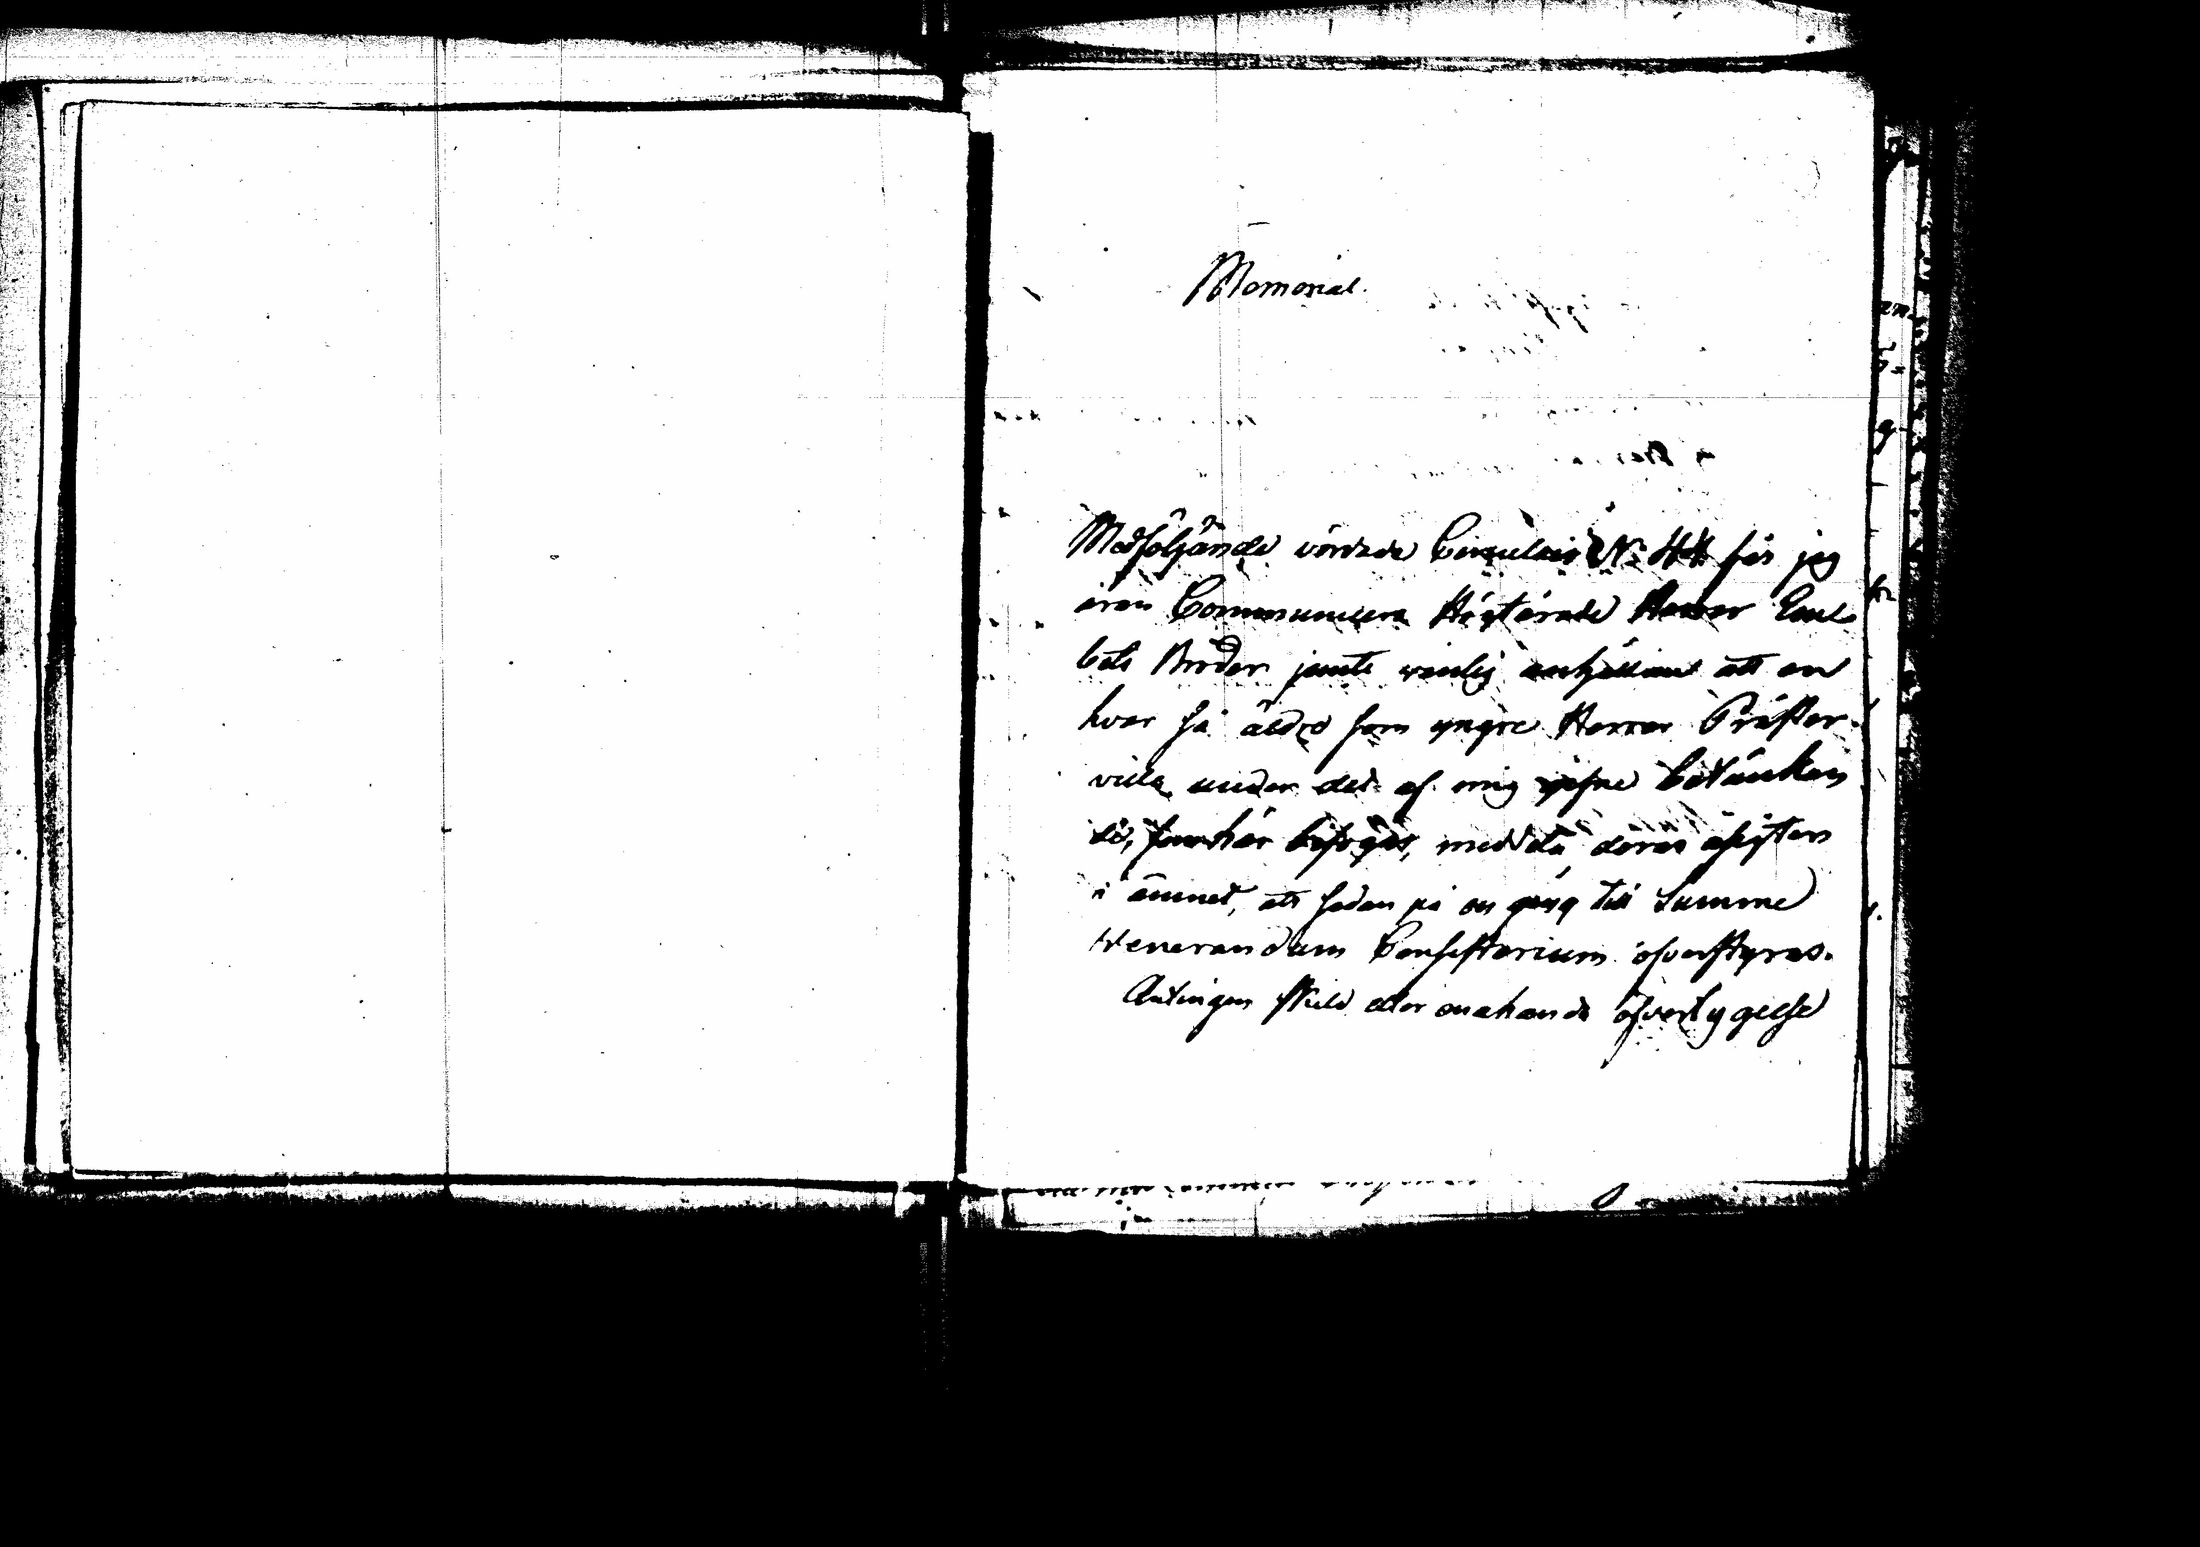 Memorial.
Medföljande vördade Circulair N: får jag
äran Communicera Högtärade Herrar Em-
bets Bröder jemte wänlig anhållan att en
hvar så äldre som yngre Herrar Präster
ville under det af mig gifne betänkan
de, som här bifogas, meddela deras åsigter
i ämnet, att sedan på en gång till Summe
Venerandum Consistorium öfverstyras.
Antingen skild eller enahanda öfvertygelse